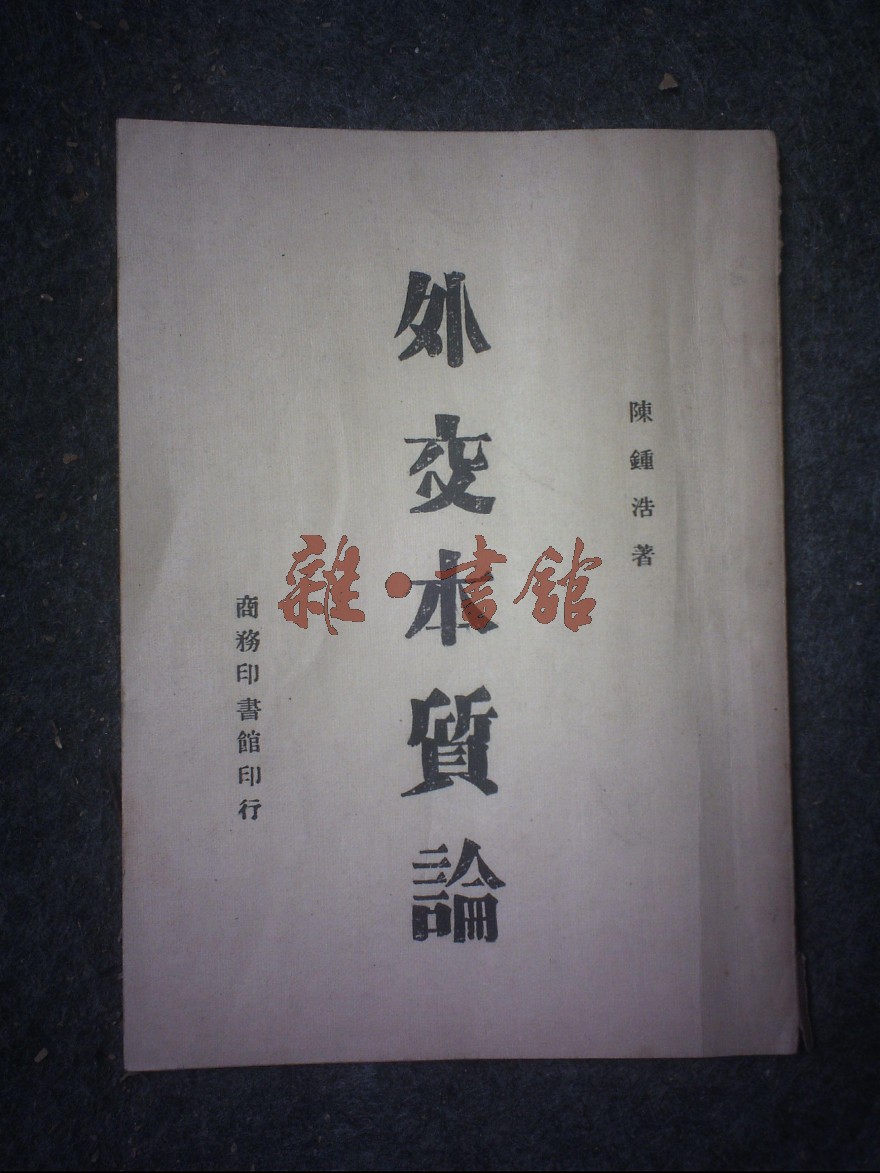 陳鍾浩著
外交本質論
商務印書館印行
雜·書館